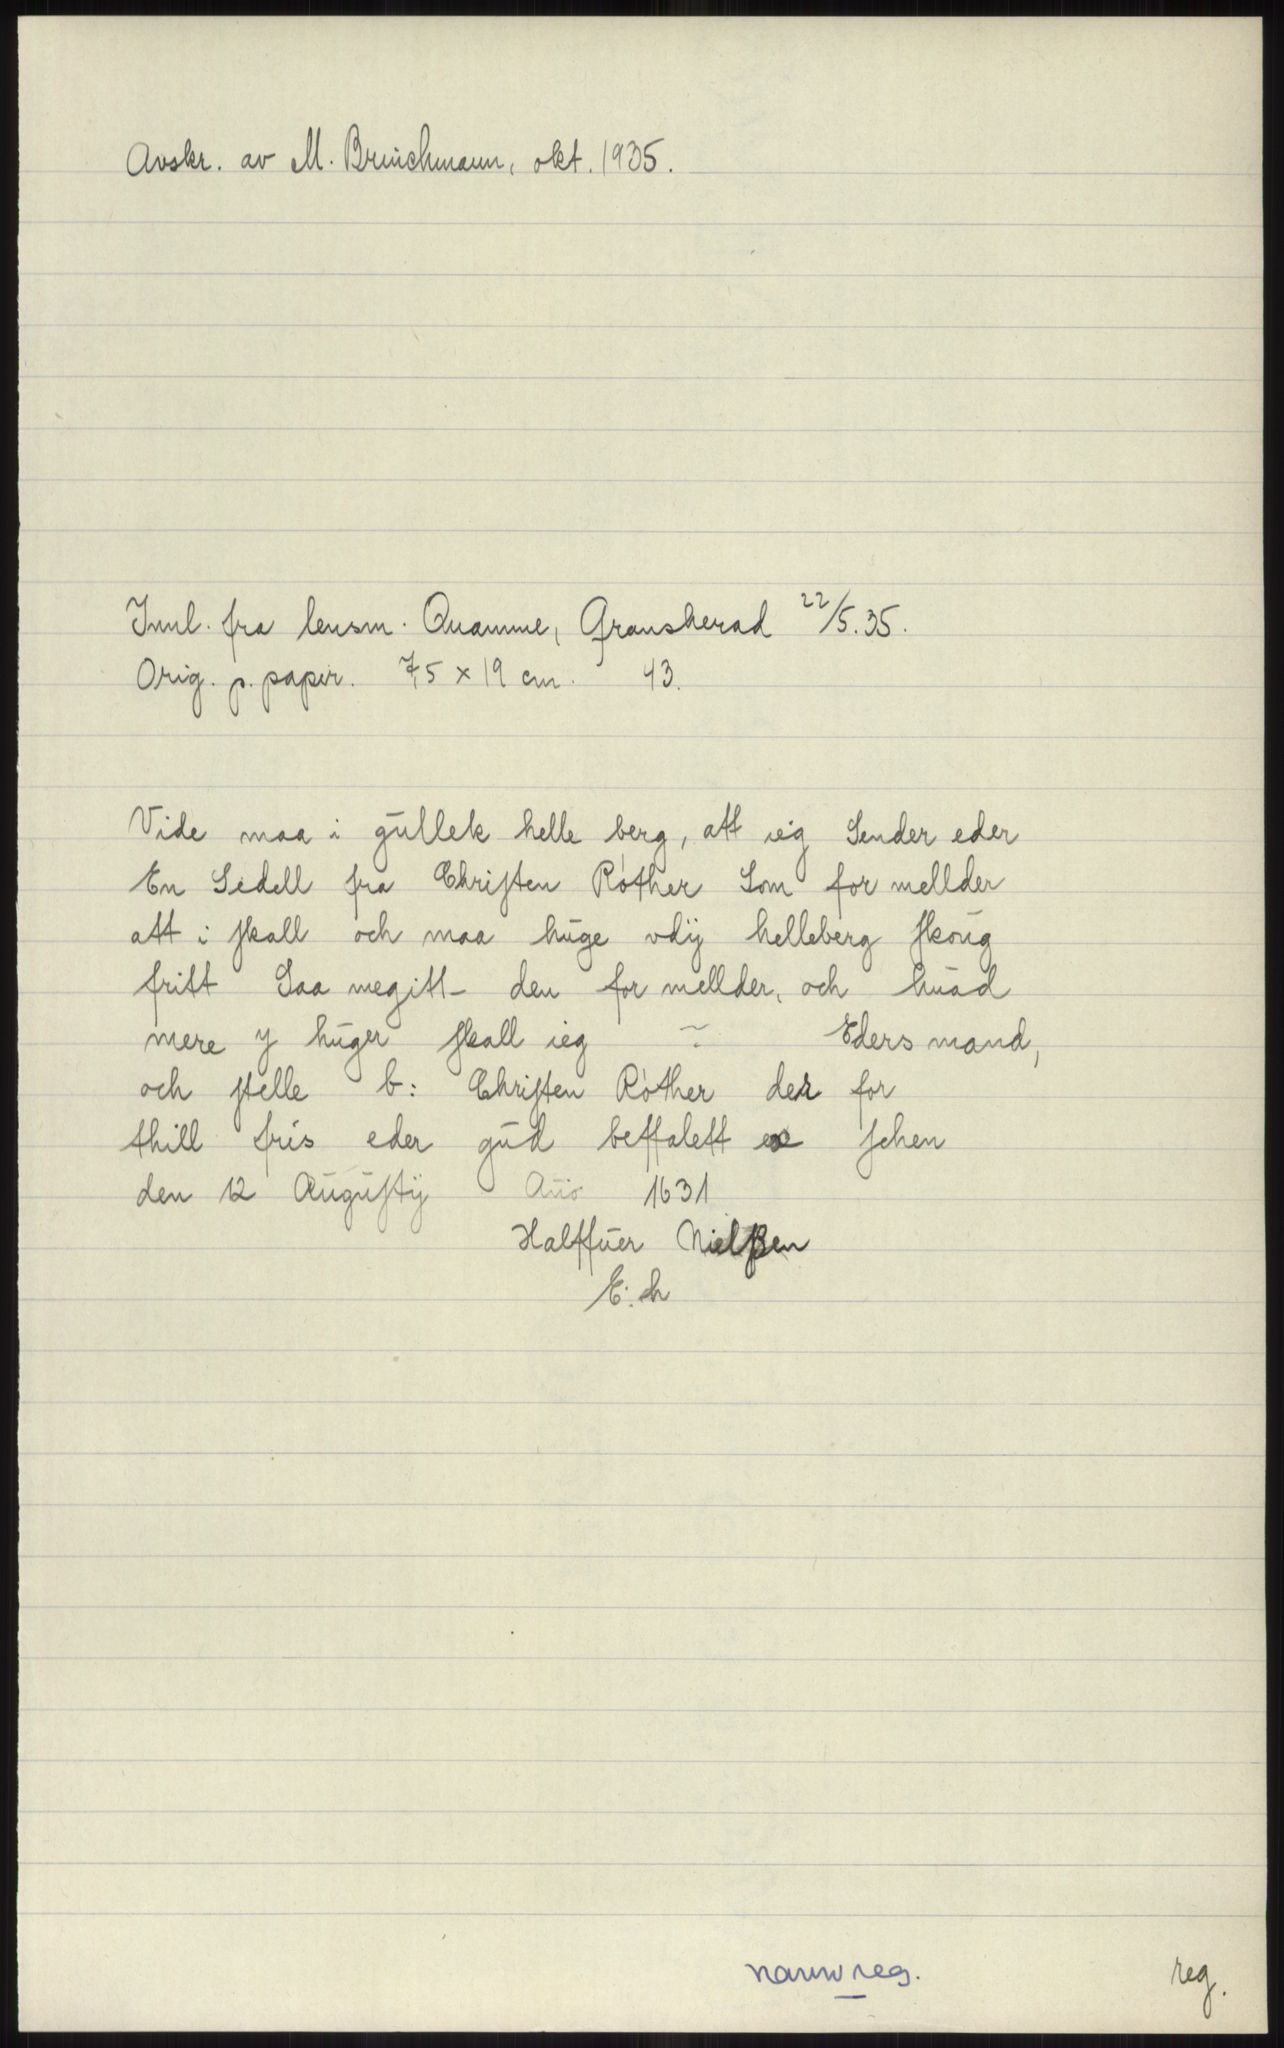 Avskr. av M. Brinchmann, okt. 1935.
Innl. fra lensm. Quamme, Gransherad 22/5.35.
Orig. p. papir. 7,5 x 19 cm. 43.
Vide maa i gullek helle berg, att ieig Sender eder
En Sedell fra Christen Róther Som for mellder
att i skall och maa huge vdij helleberg skoug
fritt Saa megitt den for mellder, och huad
mere y huger skall ieg ~ Eders mand,
och stelle b: Christen Róther der for
thill fris eder gud beffalett schen
den 12 Augustij Ano 1631
Halffuer Nielßen
E. h
navnreg.
reg.